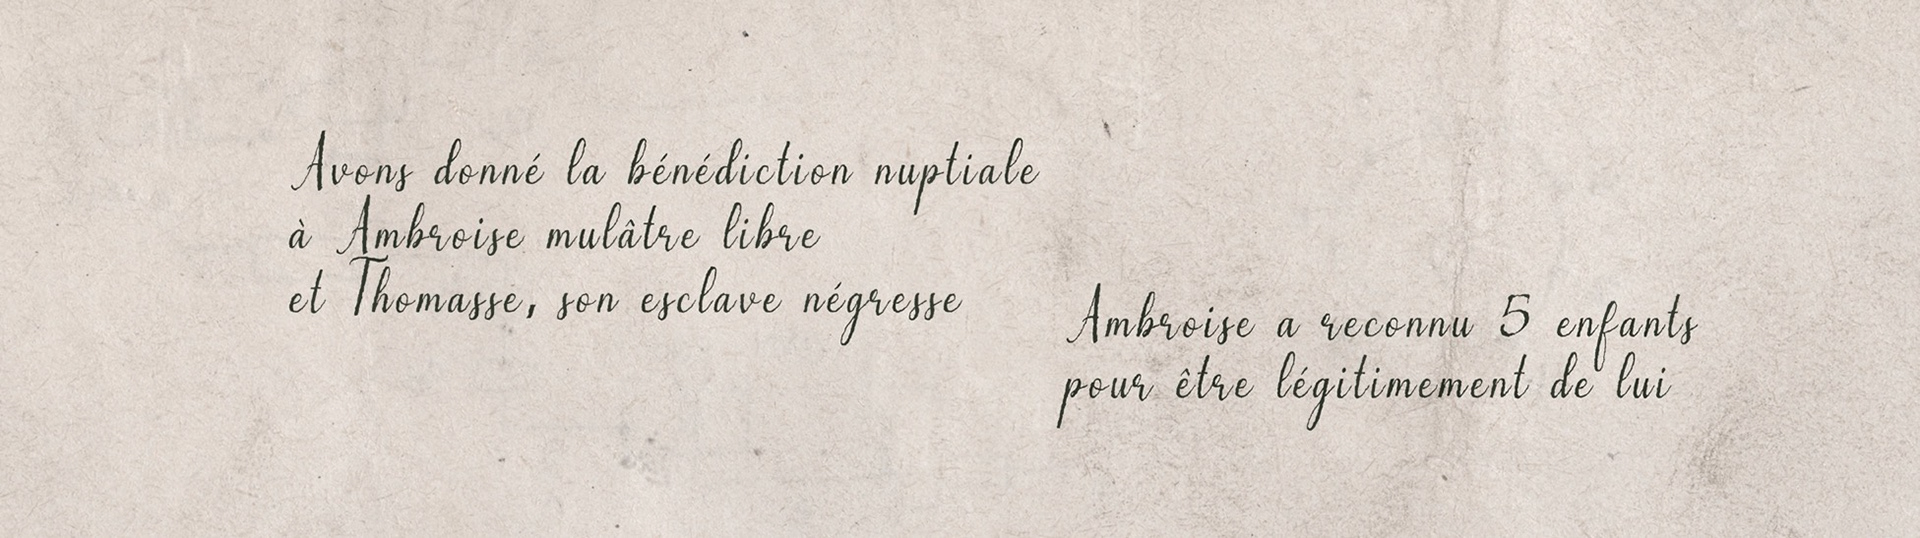 Avons donné la bénédiction nuptiale
à Ambroise mulâtre libre
et Thomasse, son esclave négresse
Ambroise a reconnu 5 enfants
pour être légitimement de lui